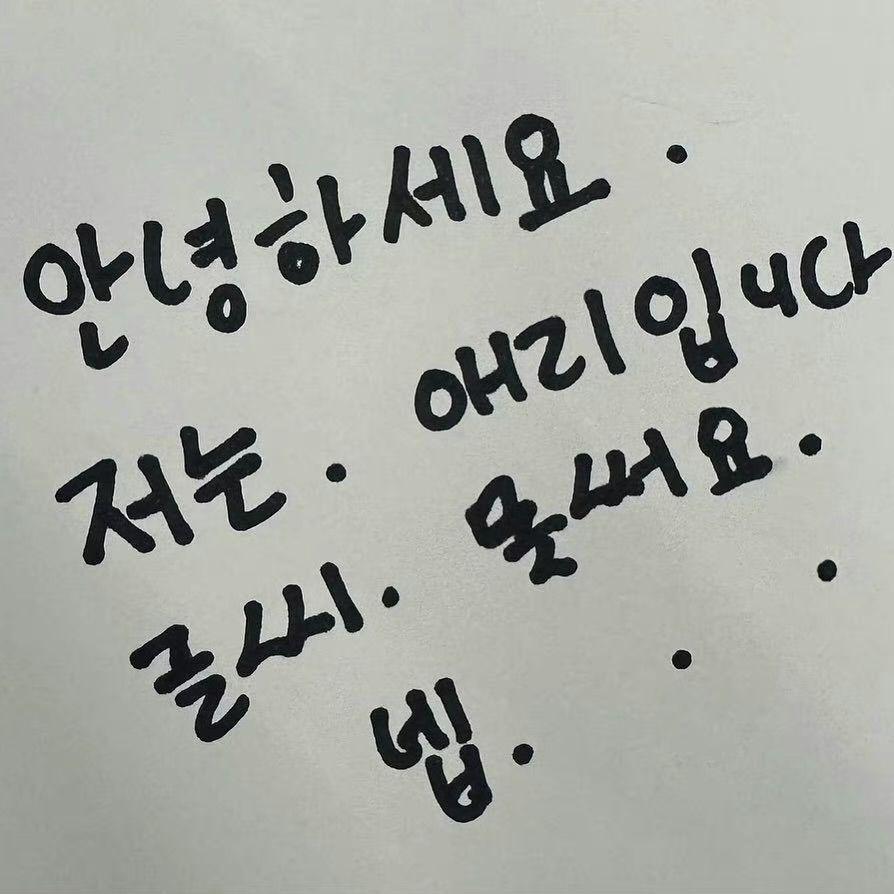 안녕하세요 .
저는 . 애리입니다
글씨 . 못써요 .
넵 . . .